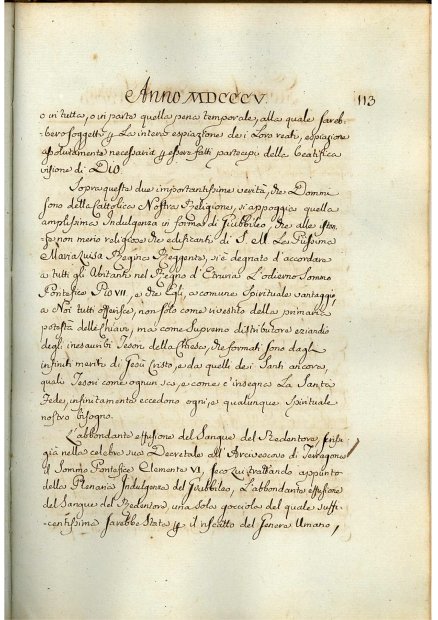 Anno MDCCCV.
113
o in tutta, o in parte quella pena temporale, alla quale sareb-
bero soggetti p la intera espiazione dei Loro reati, espiazione
assolutamente necessaria p essere fatti partecipi della beatifica
visione di DIO.
Sopra queste due importantissime verità, che Dommi
sono della Cattolica Nostra Religione, si appoggia quella
amplissima Indulgenza in forma di Giubbileo, che alle istan-
ze non meno religiose che edificanti di S. M. La Piissima
Maria Luisa Regina Reggente, si è degnato d'accordare
a tutti gli Abitanti nel Regno d'Etruria L'odierno Sommo
Pontefice Pio VII, e che Egli, a comune Spirituale vantaggio,
a Noi tutti offerisce, non solo come rivestito della primaria
potestà delle Chiavi, ma come Supremo distributore eziandio
degli inesauribili Tesori della Chiesa, che formati sono dagl'
infiniti meriti di Gesù Cristo, e da quelli dei Santi ancora,
quali Tesori come ognun sa, e come c'insegna La Santa
Fede, infinitamente eccedono ogni, e qualunque Spirituale
nostro bisogno.
L'abbondante effusione del Sangue del Redentore,
già nella celebre sua Decretale all'Arcivescovo di Terragona
il Sommo Pontefice Clemente VI, trattando appunto
della Plenaria Indulgenza del Giubbileo, L'abbondante effusione
del Sangue del Redentore, una sola gocciola del quale suffi-
centissima sarebbe stata p il riscatto del Genere Umano,